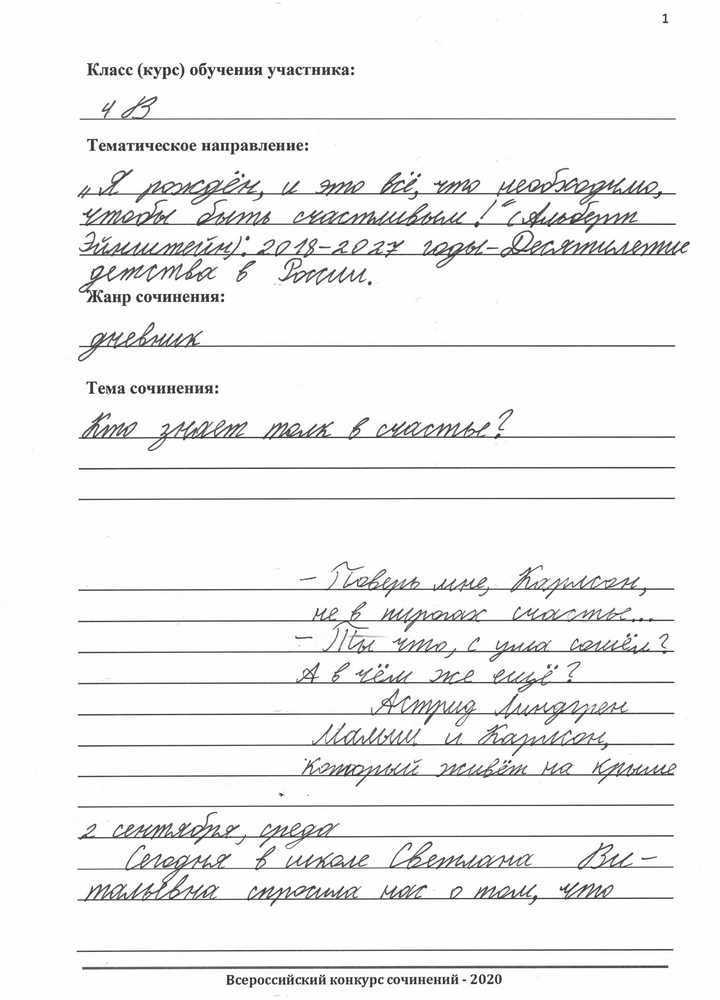 1
Класс (курс) обучения участника:
4 В
Тематическое направление:
„Я рождён, и это всё, что необходимо,
чтобы быть счастливым!" (Альберт
Эйнштейн): 2018-2027 годы-Десятилетие
детства в России.
Жанр сочинения:
дневник
Тема сочинения:
Кто знает толк в счастье?
- Поверь мне, Карлсон,
не в пирогах счастье...
- Ты что, с ума сошёл?
А в чём же ещё?
Астрид Линдгрен
Малыш и Карлсон,
который живёт на крыше
2 сентября, среда
Сегодня в школе Светлана Ви-
тальевна спросила нас о том, что
Всероссийский конкурс сочинений - 2020